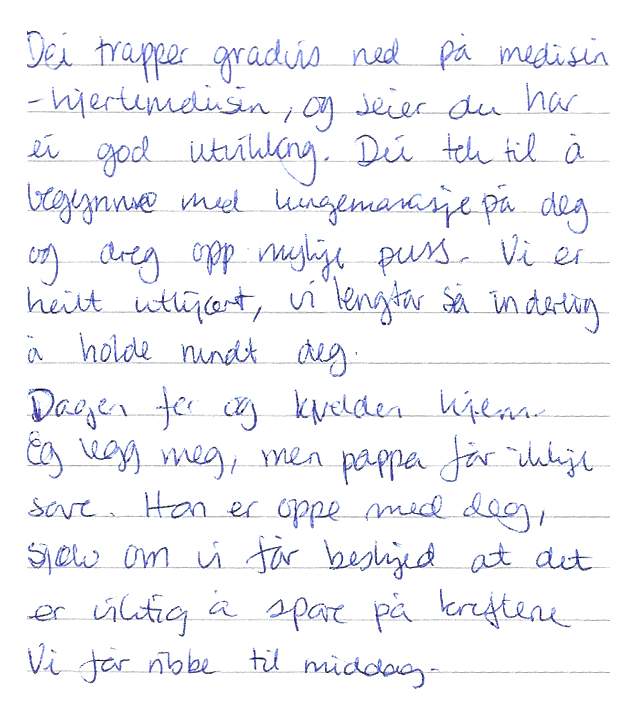 Dei trapper gradvis ned på medisin
-hjertemedisin, og seier du har
ei god utvikling. Dei tek til å
begynne med lungemassasje på deg
og dreg opp mykje puss. Vi er
heilt utkjørt, vi lengtar så inderlig
å holde rundt deg.
Dagen fer og kvelden kjem.
Eg legg meg, men pappa får ikkje
sove. Han er oppe med deg,
sjølv om vi får beskjed at det
er viktig å spare på kreftene
Vi får ribbe til middag.